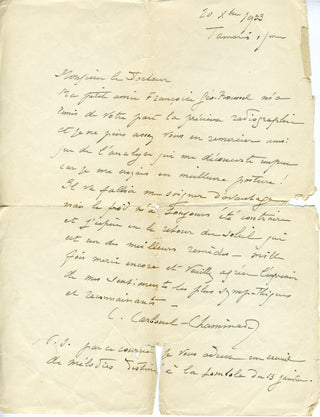 20 Xbre 1923
Tamaris s/mer
Monsieur le Docteur,
Ma petite amie Françoise Géo Roussel m'a
remis de votre part la précieuse radiographie
et je ne puis assez vous en remercier ainsi
que de l'analyse qui me déconcerte un peu
car je me croyais en meilleure posture !
Il va falloir me soigner davantage
mais le froid m'a toujours été contraire
et j'espère en le retour du soleil qui
est un des meilleurs remèdes - mille
fois merci encore et veuillez agréer l'expression
de mes sentiments les plus sympathiques
et reconnaissants -
C. Carbonel-Chaminade
P.S. par ce courrier je vous adresse un recueil
de mélodies destiné à la tombola du 13 janvier.